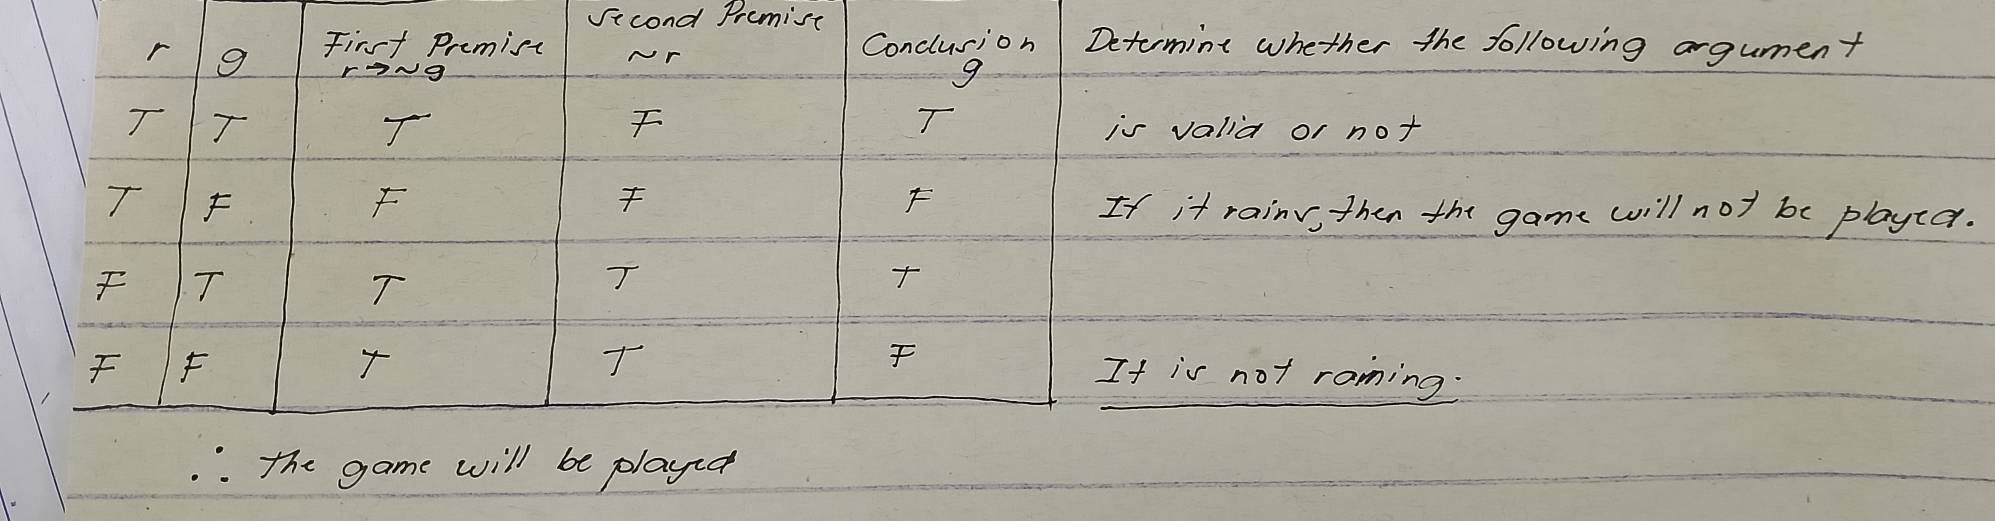 r g First Premise r→~g Second Premise ~r Conclusion g Determine whether the following argument
T T T F T is valid or not
T F F F F If it rains, then the game will not be played.
F T T T T
F F T T F It is not raining.
∴ the game will be played